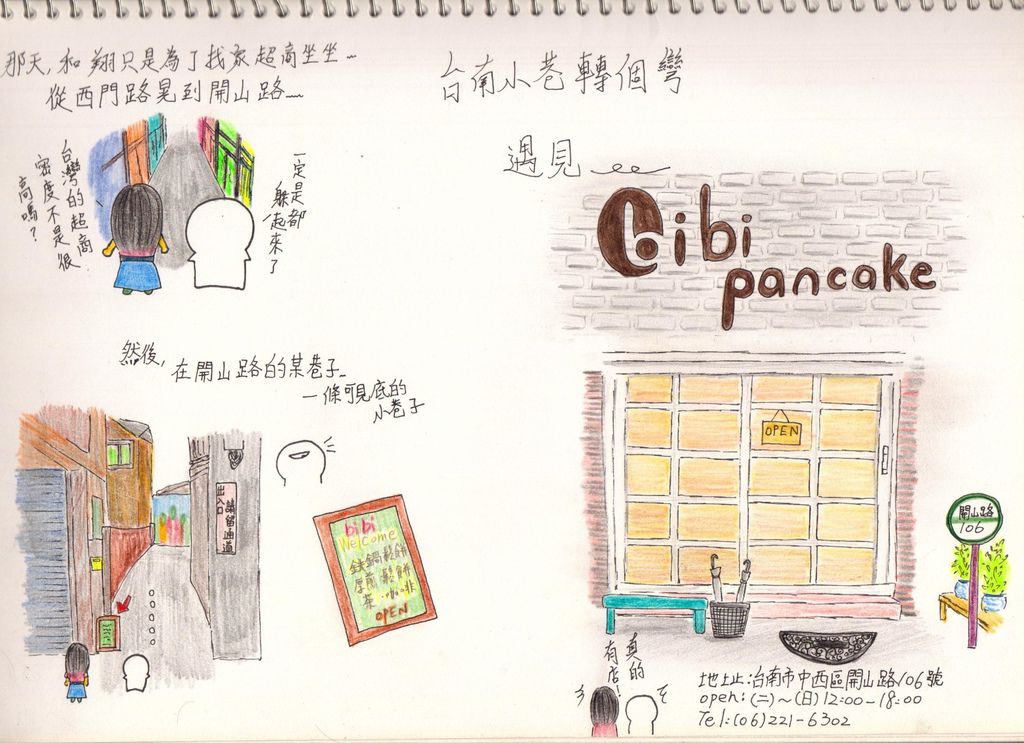 那天,和翔只是為了找家超商坐坐...
從西門路晃到開山路...
台灣的超商
密度不是很
高嗎?
一定是都
躲起來了
然後,在開山路的某巷子..
一條可見底的
小巷子
出入口
請留通道
bibi
Welcome
鑄鐵鍋鬆餅
厚煎鬆餅
茶.咖啡
OPEN
台南小巷轉個彎
遇見
bibi
pancake
OPEN
開山路
106
真的
有店!
地址:台南市中西區開山路106號
open:(二)~(日)12:00-18:00
Tel:(06)221-6302